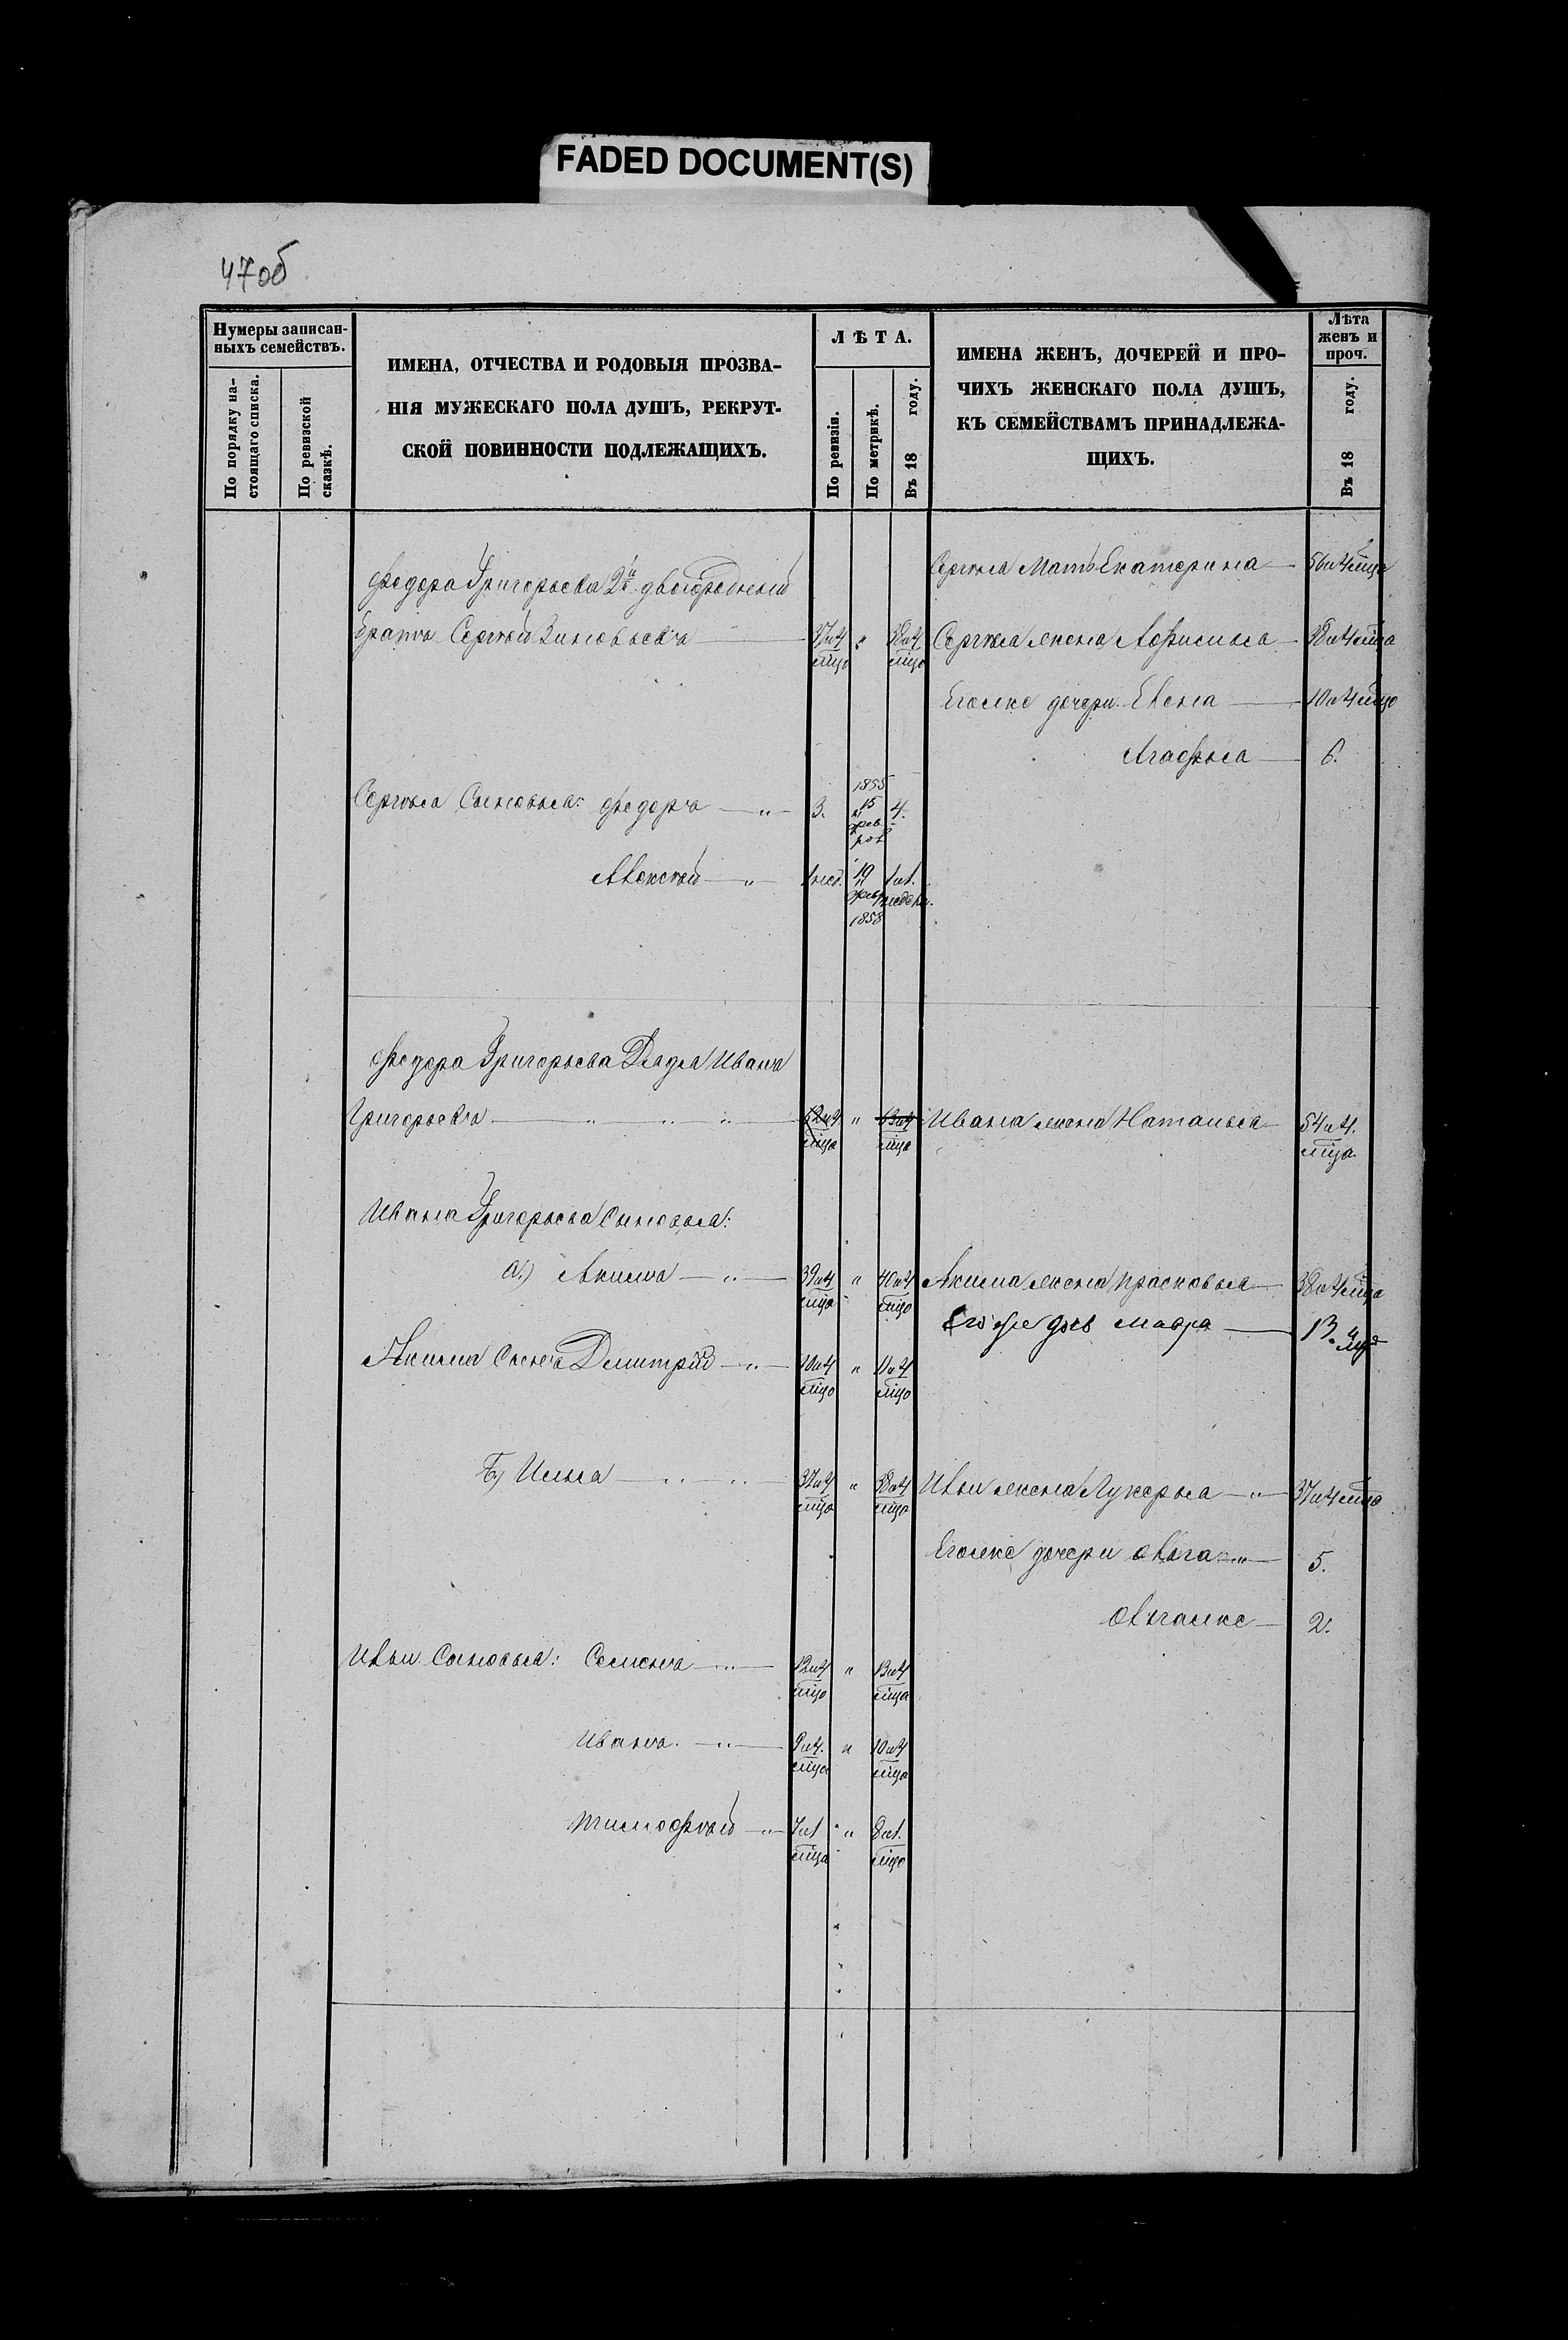 FADED DOCUMENT(S)
47об
Нумеры записан-
ныхъ семействъ.
По порядку на-
стоящаго списка.
По ревизской
сказкѣ.
ИМЕНА, ОТЧЕСТВА И РОДОВЫЯ ПРОЗВА-
НІЯ МУЖЕСКАГО ПОЛА ДУШЪ, РЕКРУТ-
СКОЙ ПОВИННОСТИ ПОДЛЕЖАЩИХЪ.
ЛѢТА.
По ревизіи.
По метрикѣ.
Въ 18 году.
ИМЕНА ЖЕНЪ, ДОЧЕРЕЙ И ПРО-
ЧИХЪ ЖЕНСКАГО ПОЛА ДУШЪ,
КЪ СЕМЕЙСТВАМЪ ПРИНАДЛЕЖА-
ЩИХЪ.
Лѣта
женъ и
проч.
Въ 18 году.
Сергѣя Мать Екатерина 56 и 4 мца
Федора Григорьева 2й двоюродный
братъ Сергѣй Зиновьевъ 37 и 4 мца " 38 и 4 мца Сергѣя жена Афимья 38 и 4 мца
Его же дочери Евгенія 10 и 4 мца
Агафья 6.
Сергѣя Сыновья: Федоръ " 3. 1855 15 фев 4.
Алексѣй " 19 фев 1858
Федора Григорьева Дядя Иванъ
Григорьевъ " " " 62 и 4 мца " 63 и 4 мца Ивана жена Наталья 54 и 4. мца
Ивана Григорьева Сыновья:
а.) Акимъ " 39 и 4 мца " 40 и 4 мца Акима жена Прасковья 38 и 4 мца
Его же дочь Мавра 13. 4 мца
Акима Сынъ Димитрій " 10 и 4 мца " 11 и 4 мца
б) Илья " " 37 и 4 мца " 38 и 4 мца Ильи жена Лукерья " 37 и 4 мца
Его же дочери Ольга " 5.
Она же 2.
Ильи Сыновья: Семенъ " 12 и 4 мца " 13 и 4 мца
Иванъ. " 9 и 4. мца " 10 и 4 мца
Тимофѣй " 7 и 1 мца " 8 и 1. мца